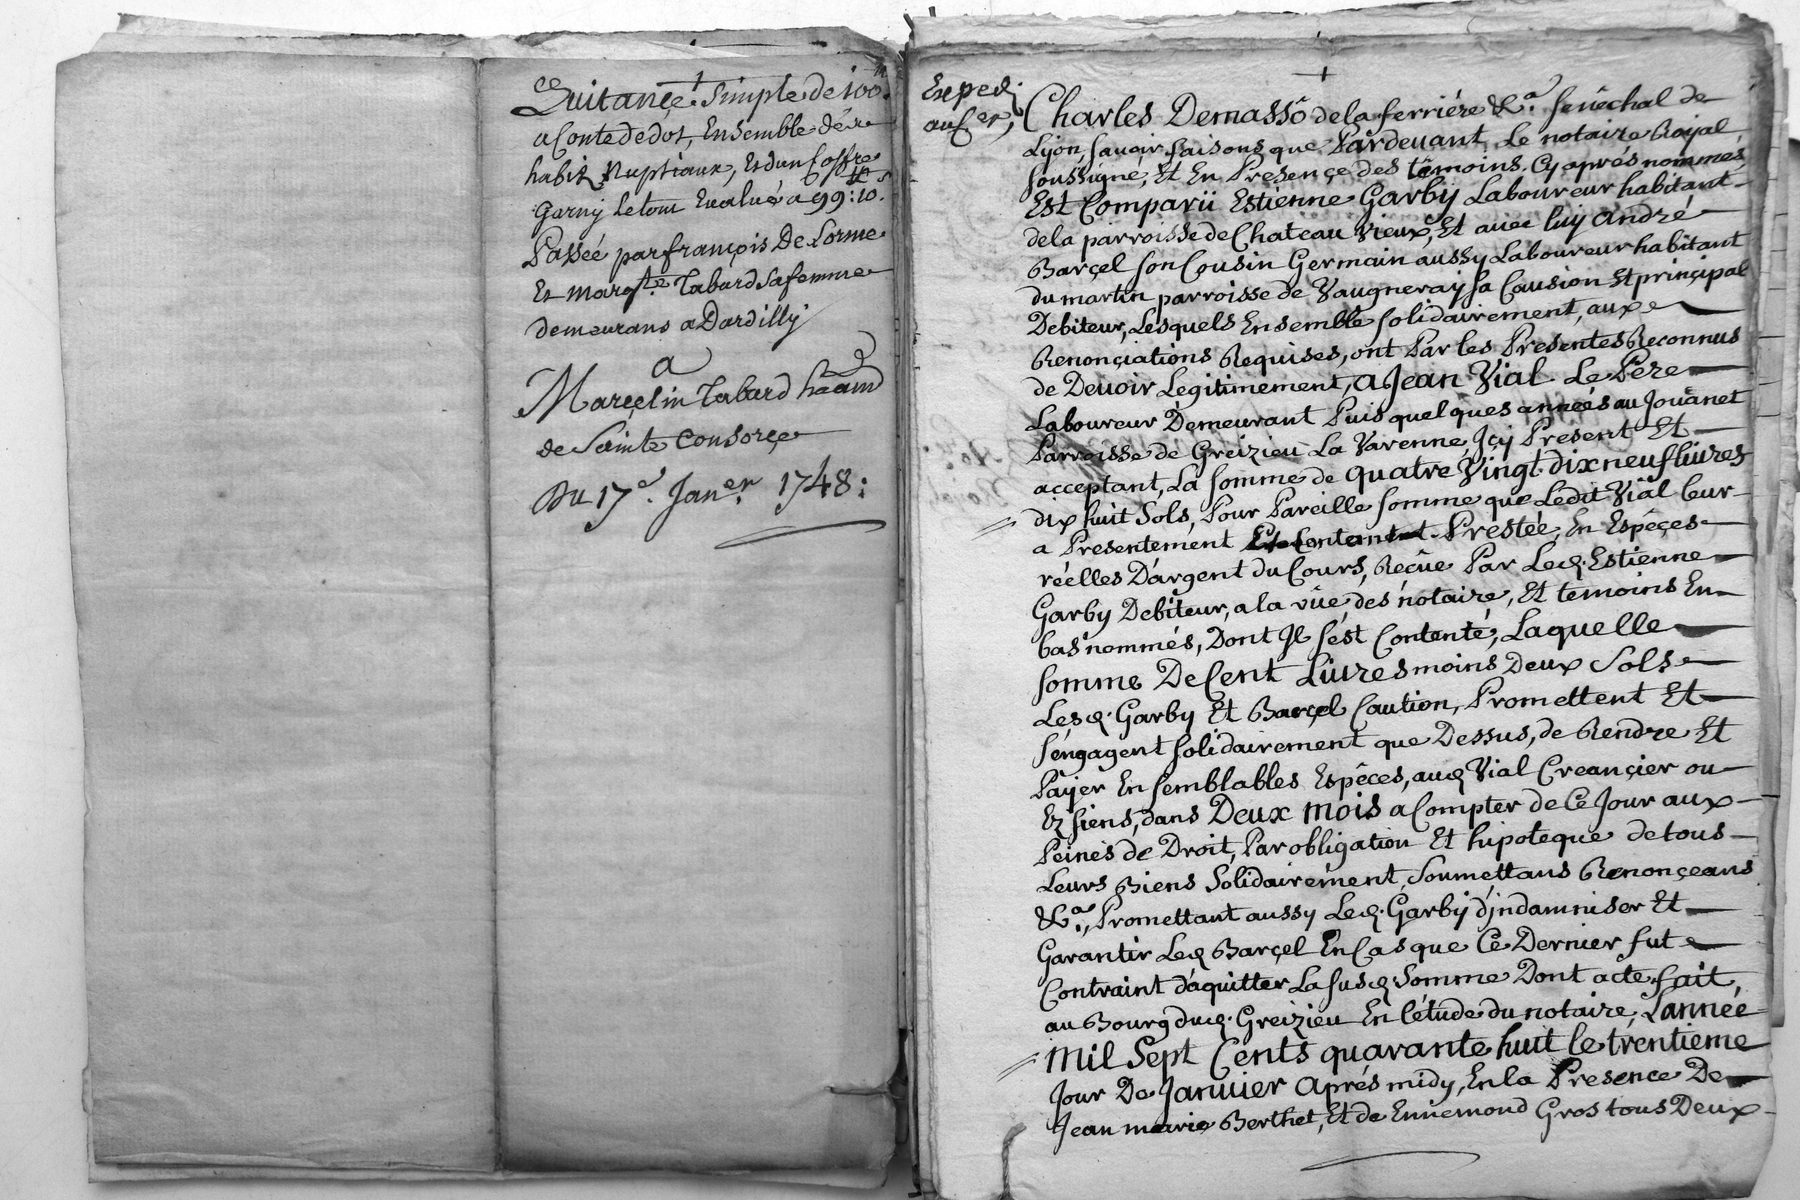 Quitançe Simple de 100ᵗᵗ
a Conte de dot, Ensemble des
habitz Nuptiaux, Et dun Coffre
Garny Le tout Evalué a 99: 10ˢ
Passée par françois De Lorme
Et margᵗᵉ Tabard Sa femme
demeurans a Dardilly
a
Marçelin Tabard
de Sainte Consorçe
Du 17ᵉ. Janᵉʳ. 1748:
Expedᵢ
Charles Demasso de la ferriére &ᵃ. Senêchal de
Lyon, Savoir faisons que Pardevant Le notaire Royal
Soussigné, Et En Présençe des témoins Cy aprés nommés
Est Comparü Estienne Garby Laboureur habitant
de la parroisse de Chateau Vieux, Et avec luy André
Barçel son Cousin Germain aussy Laboureur habitant
du martin parroisse de Vaugneray sa Causion Et prinçipal
Debiteur, Lesquels Ensemble solidairement, aux
Renonçiations Requises, ont Par les Présentes Reconnus
de Devoir Legitimement, a Jean Vial Le Pére
Laboureur Demeurant Puis quelques années au Jouânet
Parroisse de Greizieu La Varenne, Içy Present Et
acceptant, La somme de quatre Vingt dix neuf livres
dix huit Sols, Pour Pareille somme que Ledit Vial leur
a Presentement Prestée, En Espéçes
réelles D'argent du Cours, Reçûe Par Led. Estienne
Garby Debiteur, a la vûe des notaire, Et temoins En
bas nommés, Dont Il s'est Contenté, Laquelle
somme De Cent Livres moins Deux Sols
Lesd. Garby Et Barçel Caution, Promettent Et
s'engagent solidairement que Dessus, de Rendre Et
Päyer En semblables Espêces, aud Vial Creançier ou
Ez siens, dans Deux mois a Compter de Ce Jour aux
Peines de Droit, Par obligation Et hipoteque de tous
Leurs Biens Solidairement, Soumettans Renonçeans
&ᵃ, Promettant aussy Led. Garby d'jndamniser Et
Garantir Led Barçel En Cas que Ce Dernier fut
Contraint d'aquitter La susd. Somme Dont acte fait,
au Bourg dud. Greizieu En l'étude du notaire, L'année
Mil Sept Cents quarante huit le trentieme
Jour De Janvier aprés midy, En la Presence De
Jean marie Berthet, Et de Ennemond Gros tous Deux